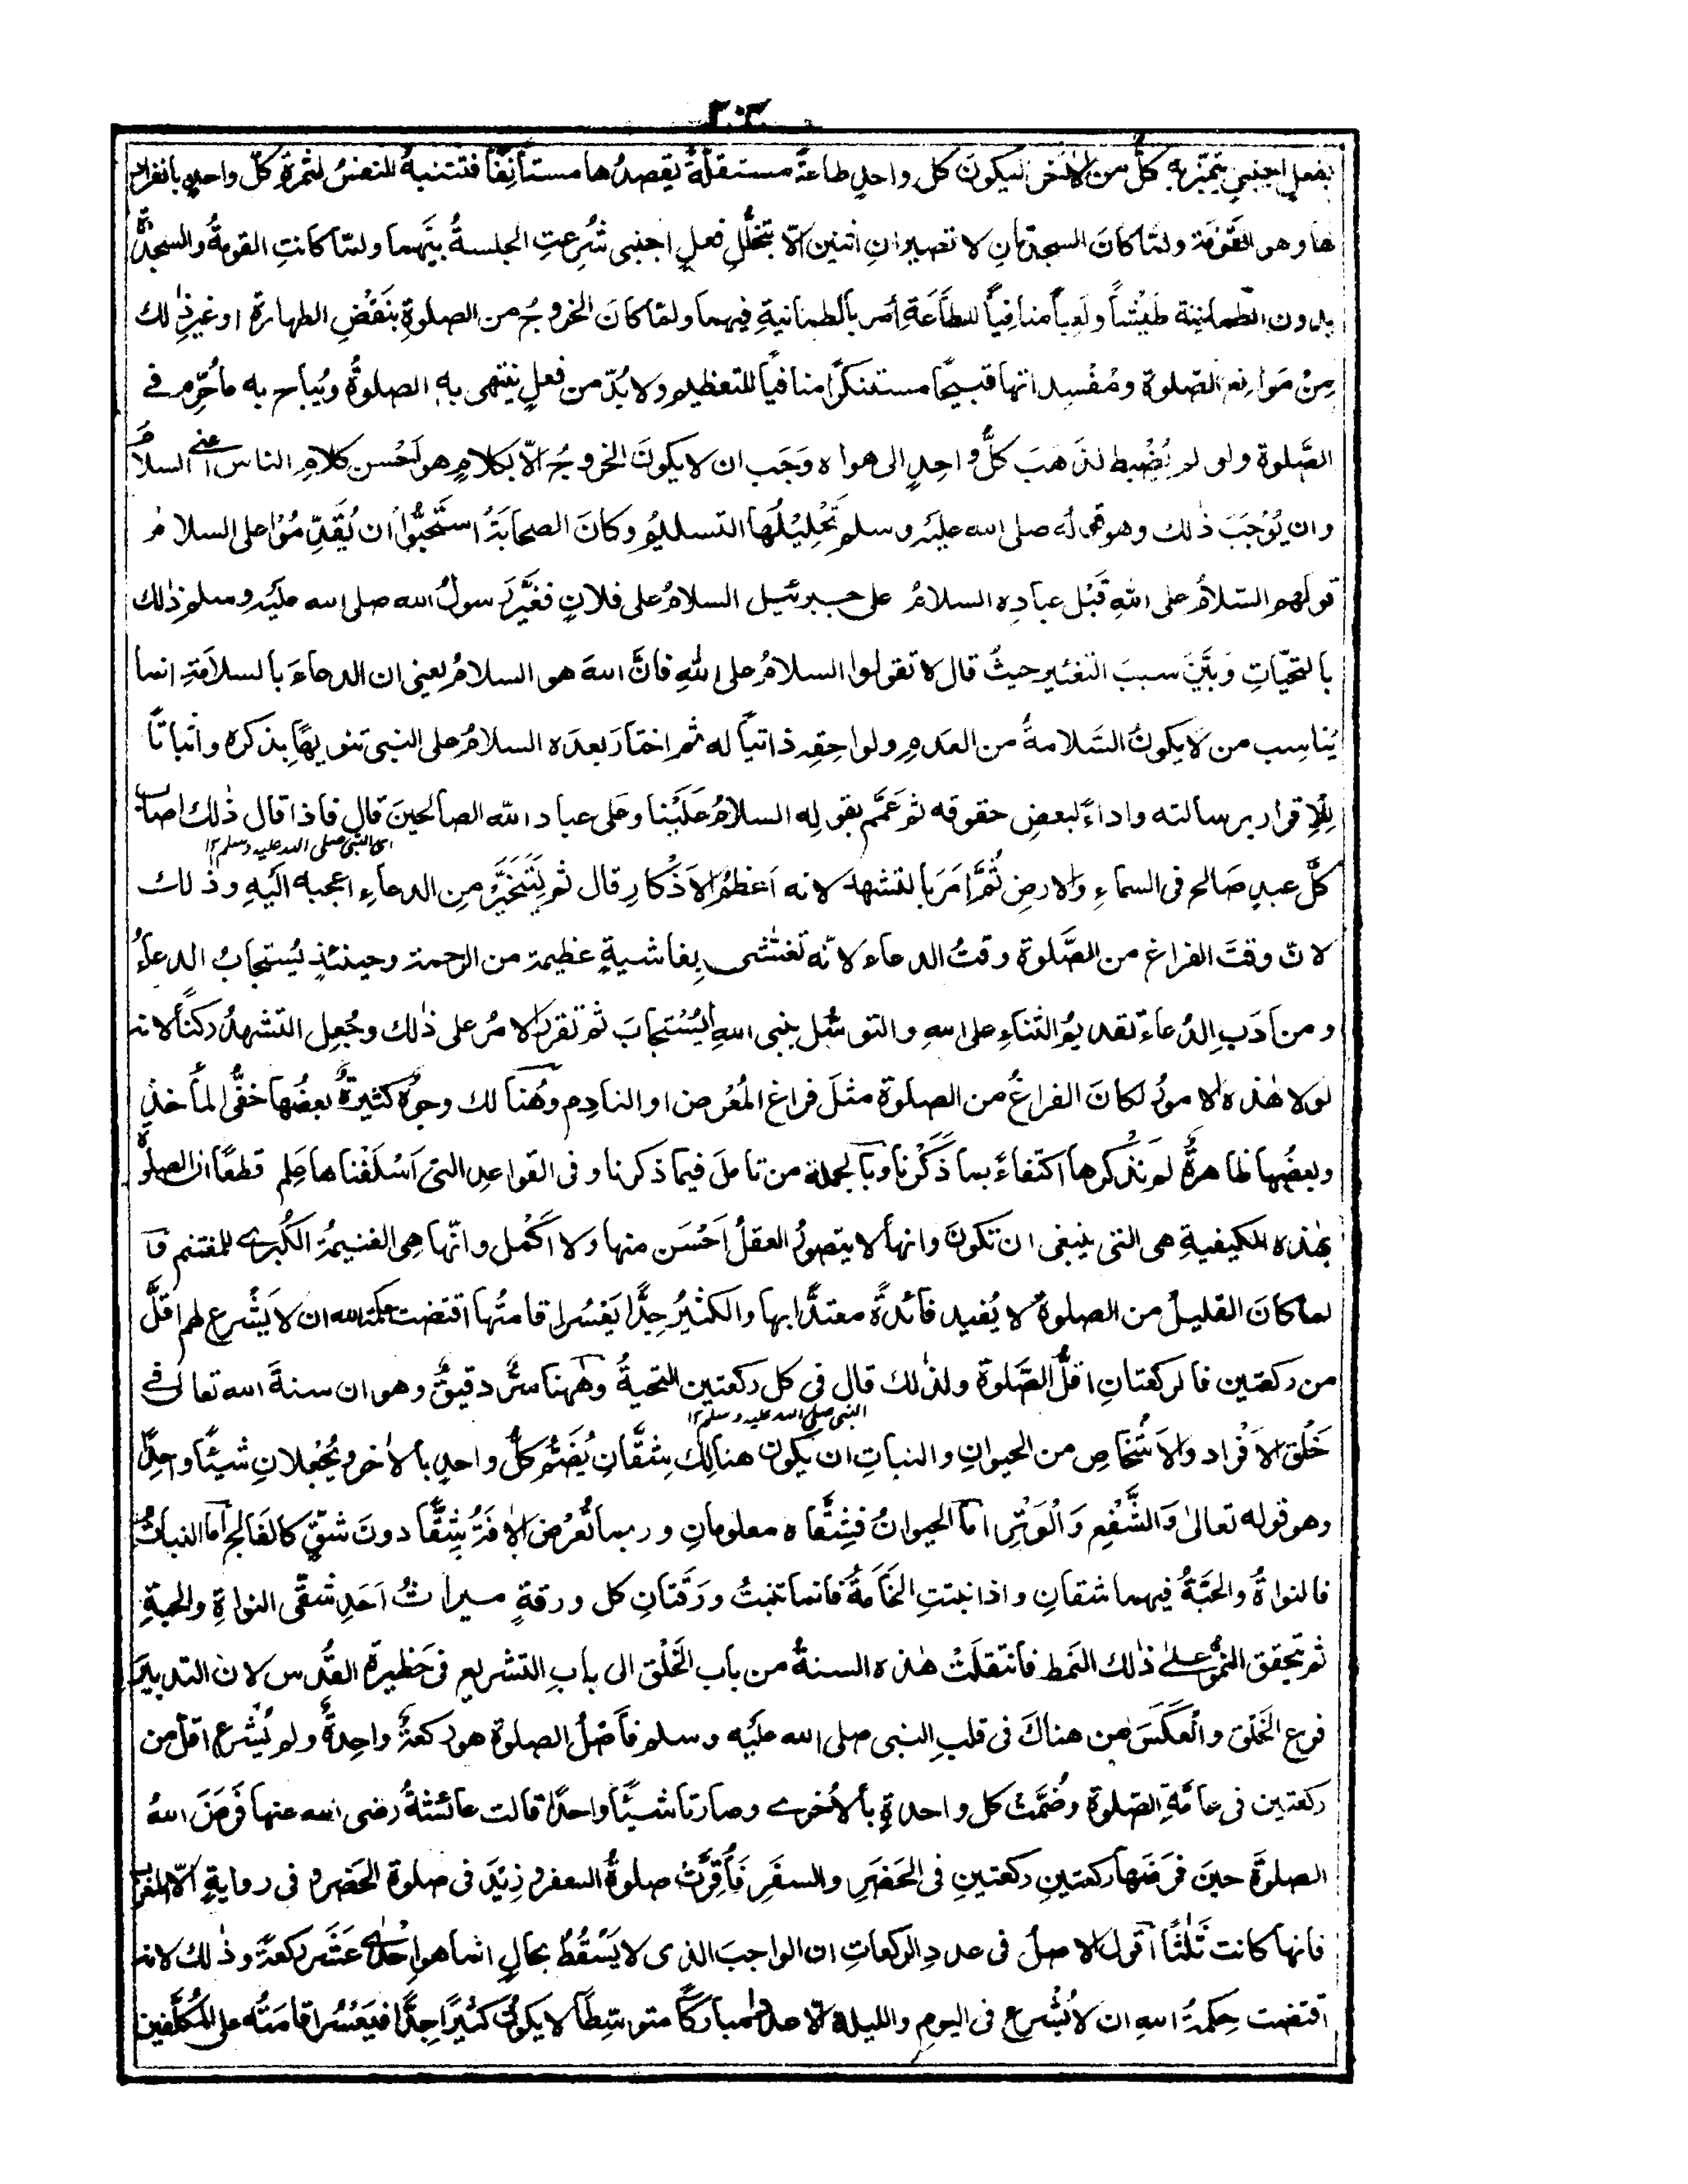 ٣٠٣
بفعلٍ اجنبيٍ يتميّز به كلٌّ من الاٰخر ليكونَ كل واحدٍ طاعةً مستقلّةً يقصدُها مستأنِفًا فتتنبهُ النفسُ لثمرةِ كلّ واحدٍ بانفراد
ها وهو القَوْمَة ولمّا كانَ السجدتانِ لا تصيرانِ اثنين الّا بتخلّلِ فعلٍ اجنبى شُرِعتِ الجلسةُ بينَهما ولمّا كانتِ القومةُ والسجدةُ
بدون الطمانينة طَيْشًا ولَعِبًا منافِيًا للطَّاعَةِ اُمر بالطمانيةِ فيهما ولمّا كانَ الخروجُ من الصلوةِ بنَقْضِ الطهارةِ او غيرِ ذٰلك
مِنْ مَوَانِعِ الصّلوة ومُفْسِداتها قبيحًا مستنكرًا منافيًا للتعظيمِ ولا بُدّ من فعلٍ ينتهى به الصلوةُ ويُباح به ما حُرِّم فى
الصَّلوة ولو لم يُضْبط لذهبَ كلُّ واحدٍ الى هواه وَجَب ان لا يكونَ الخروجُ الّا بكلامٍ هو احْسن كلامِ الناس اعنى السلامَ
وان يُوْجَبَ ذٰلك وهو قوله صلى الله عليه وسلم تَحْلِيْلُهَا التسليمُ وكانَ الصحابَةُ استَحبُّوا ان يُقَدِّمُوْا على السلام
قولَهم السّلامُ على اللهِ قَبْل عبادِه السلامُ على جبرئيل السلامُ على فلانٍ فغيَّر رسولُ الله صلى الله عليه وسلم ذٰلك
بالتحيّاتِ وَبَيَّنَ سببَ التغئيرِ حيثُ قال لا تقولوا السلامُ على اللهِ فانَّ اللهَ هو السلامُ يعنى ان الدعاءَ بالسلامَةِ انما
يُناسِب من لا يكونُ السَّلامةُ من العدمِ ولواحِقِه ذاتيًّا له ثم اختارَ بعدَه السلامُ على النبى تنويهًا بذكره واثباتًا
لِلاِقرار برسالته واداءً لبعضِ حقوقه ثم عَمَّم بقوله السلامُ عَلَيْنا وعلى عباد الله الصالحينَ قال فاذا قال ذٰلك اصاب
اى النبى صلى الله عليه وسلم ١٢
كلَّ عبدٍ صَالح فى السماءِ والارضِ ثُمَّ اَمَرَ بالتشهد لانه اَعْظَمُ الاَذْكارِ قال ثم لِيَتَخَيَّرْ مِن الدعاءِ اعجبه الَيهِ وذلك
لانّ وقتَ الفراغِ من الصَّلوةِ وقتُ الدعاء لانّه تَغشّى بِغاشيةٍ عظيمة من الرحمة وحينئذٍ يُستجابُ الدعاءُ
ومن اَدَبِ الدُعاء تقديمُ الثناءِ على اللهِ والتوسُّل بنبى اللهِ لِيُسْتجابَ ثم تقرر الامرُ على ذٰلك وجُعِل التشهدُ ركنًا لانه
لولا هٰذه الامورُ لكانَ الفراغُ من الصلوة مثلَ فراغِ المُعْرض او النادِم وهُنالك وجوهٌ كثيرةٌ بعضُها خفىُّ المأخذِ
وبعضُها ظاهرةٌ لم نذكرها اكتفاءً بما ذَكَرْنا وبالجملة من تامل فيما ذكرنا وفى القواعِدِ التى اَسْلَفْناها عَلِم قطعًا ان الصلوة
بهٰذه الكيفيةِ هى التى ينبغى ان تكونَ وانها لا يتصورُ العقلُ اَحْسَن منها ولا اَكْمل وانّها هِى الغنيمةُ الكُبرٰى للمغتنم و
لما كانَ القليلُ من الصلوة لا يُفيد فائدةً معتدًّا بها والكثيرُ جِدًّا يَعْسُر اقامتُها اقتضت حكمة الله ان لا يَشْرع لهم اقلَّ
من ركعتين فالركعتانِ اقلُّ الصَّلوة ولذٰلك قال فى كل ركعتين التحيةُ وهٰهنا سرٌّ دقيقٌ وهو ان سنةَ الله تعالى فى
النبى صلى الله عليه وسلم ١٢
خَلْق الاَفْراد والاَشْخاصِ من الحيوانِ والنباتِ ان يكون هنالك شِقَّانِ يُضَمُّ كلُّ واحدٍ بالاٰخر ويُجْعلانِ شيئًا واحدًا
وهو قوله تعالىٰ وَالشَّفْعِ وَالْوَتْرِ امّا الحيوانُ فشِقَّاه معلومانِ وربما تَعْرُض الاٰفَةُ شِقًّا دونَ شقٍّ كالفَالج امّا النباتُ
فالنواةُ والحَبَّةُ فيهما شقانِ واذا نبتتِ الخَامَةُ فانما تنبتُ ورَقَتانِ كل ورقةٍ ميراثُ اَحَدِ شقَّى النواةِ والحبةِ
ثم تحقق النموُّ على ذٰلك النَمط فانتقلَتْ هٰذه السنةُ من باب الخَلْق الى بابِ التشريعِ فى حَظيرة القُدس لان التدبيرَ
فرع الخَلق وانْعكَسَ من هناكَ فى قلبِ النبى صلى الله عليه وسلم فاَصْلُ الصلوة هو ركعةٌ واحِدةٌ ولم يُشْرع اقل من
ركعتين فى عامّةِ الصّلوة وضُمَّتْ كل واحدةٍ بالاُخرى وصارتا شيئًا واحدًا قالت عائشةُ رضى الله عنها فَرَضَ اللهُ
الصلوةَ حينَ فرَضَها ركعتينِ ركعتينِ فى الحَضَرِ والسفَرِ فَاُقِرَّتْ صلوةُ السفر وزِيْدَ فى صلوة الحَضر وفى روايةٍ الّا المغرب
فانها كانت ثَلٰثًا اقول الاصلُ فى عددِ الركعاتِ ان الواجبَ الذى لا يَسْقُطُ بحالٍ انما هو احدٰى عَشَرَ ركعةً وذٰلك لانه
اقتضت حِكمةُ اللهِ ان لا يُشْرع فى اليومِ والليلة الّا عددًا مباركًا متوسِّطًا لا يكونُ كثيرًا جِدًّا فيَعْسُر اقامَتُه على المُكلَّفين